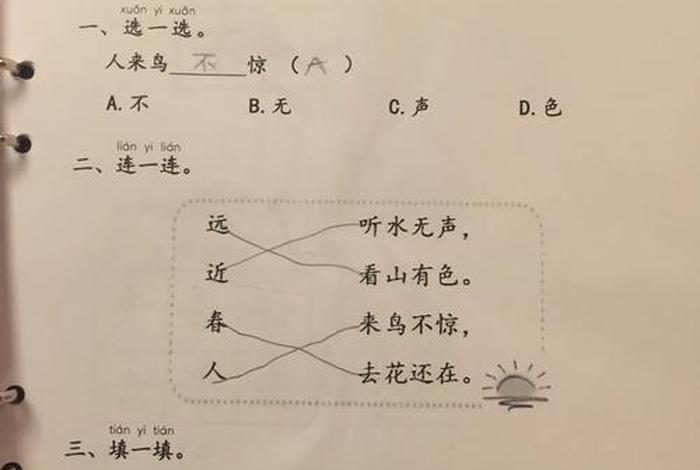 xuǎn yi xuǎn
一、选一选。
人来鸟 不 惊 （ A ）
A. 不 B. 无 C. 声 D. 色
lián yi lián
二、连一连。
远 听水无声，
近 看山有色。
春 来鸟不惊，
人 去花还在。
tián yi tián
三、填一填。